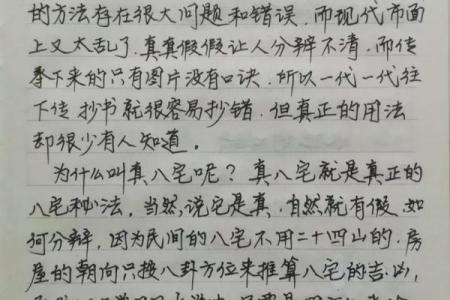 的方法存在很大问题和错误,而现代市面
上又太乱了,真真假假让人分辨不清,而传
承下来的只有图片没有口诀,所以一代一代往
下传抄书就很容易抄错,但真正的用法
却很少有人知道。
为什么叫真八宅呢?真八宅就是真正的
八宅秘法,当然,说它是真,自然就有假,如
何分辨,因为民间的八宅不用二十四山的,房
屋的朝向只按八卦方位来推算八宅的吉凶,